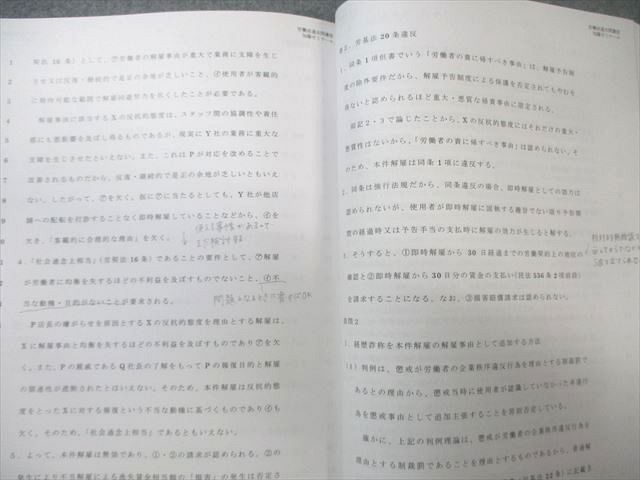 契法16条）として、⑦労働者の解雇事由が重大で業務に支障を生じ
させ又は反復・継続的で是正の余地が乏しいこと、④使用者が客観的
に期待可能な範囲で解雇回避努力を尽くしたことが必要である。
解雇事由に該当するXの反抗的態度は、スタッフ間の協調性や責任
感にも悪影響を及ぼし得るものであるが、現実にY社の業務に重大な
支障を生じさせたといえない。また、これはPが対応を改めることで
改善されるものだから、反復・継続的で是正の余地が乏しいともいえ
ない。したがって、⑦を欠く。仮に⑦に当たるとしても、Y社が他店
舗への配転を打診することなく即時解雇していることなどから、④を
欠き、「客観的に合理的な理由」を欠く。
4．「社会通念上相当」（労契法16条）であることの要件として、⑦解雇
が労働者に均衡を失するほどの不利益を及ぼすものでないこと、④不
当な動機・目的がないことが要求される。
問題となるときに書けばOK
P店長の嫌がらせを原因とするXの反抗的態度を理由とする解雇は、
Xに解雇事由と均衡を失するほどの不利益を及ぼすものであり⑦を欠
く。また、Pの親戚であるQ社長の了解をもってPの報復目的と解雇
の関連性が遮断されたとはいえない。そのため、本件解雇は反抗的態
度をとったXに対する報復という不当な動機に基づくものであり④も
欠く。そのため、「社会通念上相当」であるともいえない。
5．よって、本件解雇は無効であり、①・②の請求が認められる。②の
発生により不当解雇による逸失賃金相当額の「損害」の発生は否定さ
労働法過去問講座
加藤ゼミナール
第三．労基法20条違反
1．同条1項但書でいう「労働者の責に帰すべき事由」は、解雇予告制
度の除外要件だから、解雇予告制度による保護を否定されてもやむを
得ないと認められるほど重大・悪質な帰責事由に限定される。
前記2・3で論じたことから、Xの反抗的態度にはそれだけの重大・
悪質性はないから、「労働者の責に帰すべき事由」は認められない。そ
のため、本件解雇は同条1項に違反する。
2．同条は強行法規だから、同条違反の場合、即時解雇としての効力は
認められないが、使用者が即時解雇に固執する趣旨でない限り予告期
間の経過時又は予告手当の支払時に解雇の効力が生じると解する。
3．そうすると、①即時解雇から30日経過までの労働契約上の地位の
確認と②即時解雇から30日分の賃金の支払い（民法536条2項前段）
を請求することになる。なお、③損害賠償請求は認められない。
設問2
1．経歴詐称を本件解雇の解雇事由として追加する方法
(1) 判例は、懲戒が労働者の企業秩序違反行為を理由とする制裁罰で
あるとの理由から、懲戒当時に使用者が認識していなかった非違行
為を懲戒事由として追加主張することを原則否定している。
確かに、上記の判例理論は、懲戒が労働者の企業秩序違反行為を
理由とする制裁罰であることを理由とするものであるから、普通解